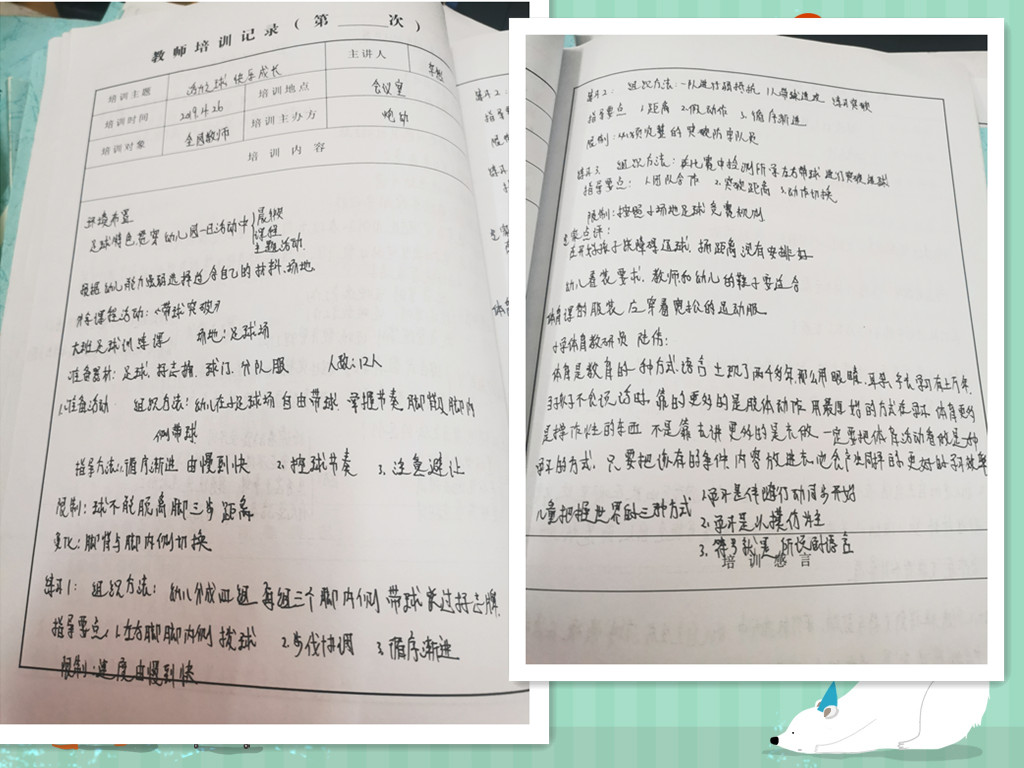 教师培训记录(第 次)
培训主题 快乐成长 主讲人
培训时间 2019.4.26 培训地点 会议室
培训对象 全园教师 培训主办方
培训内容
环境布置
足球特色贯穿幼儿园一日活动中 晨锻
课程
主题活动
根据幼儿能力强弱选择适合自己的材料、场地
课程活动:《带球突破》
大班足球训练课 场地:足球场
准备器材:足球、标志牌、球门、分队服 人数:12人
1.准备活动 组织方法:幼儿在足球场自由带球 掌握节奏 脚背及脚内
侧带球
指导方法:1.循序渐进 由慢到快 2.控球节奏 3.注意避让
限制:球不能脱离脚三步距离
变化:脚背与脚内侧切换
练习1: 组织方法:幼儿分成四组 每组三个脚内侧带球穿过标志牌.
指导要点:1.左右脚脚内侧拨球 2.步伐协调 3.循序渐进
限制:速度由慢到快
练习2: 组织方法:一队进行 1人带球进攻 练习突破
指导要点 1.距离 2.假动作 3.循序渐进
限制: 的突破防守队员
练习3 组织方法:在比赛中检测所学左右带球
指导要点:1.团队合作 2.突破距离 3.动作切换
限制:按照小场地足球竞赛规则
专家点评:
在开始孩子 障碍运球,场距离没有安排好
幼儿着装要求,教师和幼儿的鞋子要适合
体育课的服装 应穿着宽松的运动服
小学体育教研员 陆伟:
体育是教育的一种方式.语言 出现了两千多年,那么用眼睛、耳朵 学习有上万年
当孩子不会说话时 靠的更多的是肢体动作 用最原始的方式在学习 体育更多
是操作性的东西 不是靠去讲 更多的是去做 一定要把体育活动看做是一种
学习的方式,只要把你有的条件 内容放进去,他会产生同样的 更好的学习效率
儿童把握世界的三种方式 1.学习是伴随行动同步开始
2.学习是以模仿为主
3.符号就是所说的语言
培训感言